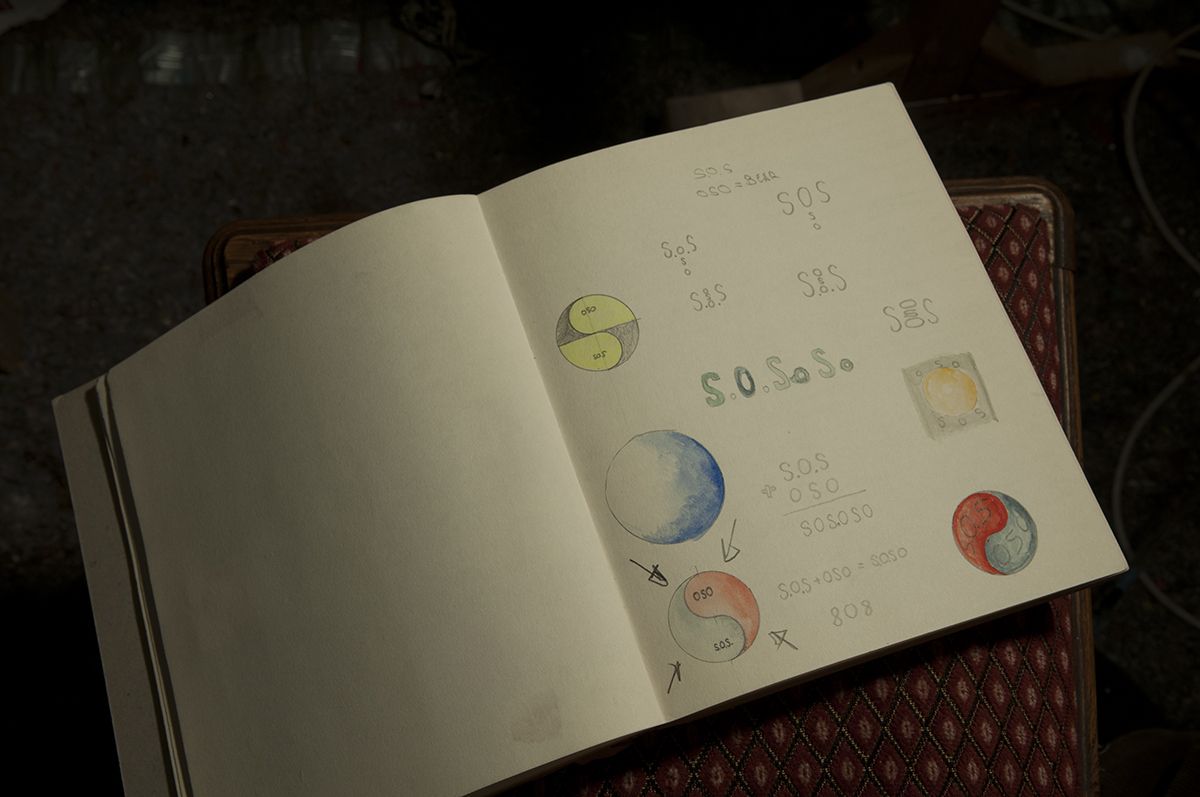 S.O.S
OSO = BEAR
SOS
S
O
S.O.S
S
O
S.O.S
S
O
OSO
SOS
OSO
S.O.S
OSO
S.O.S.o.S.o
OSO
SOS
S.O.S
+ OSO
SOSOSO
S.O.S + OSO = SOSO
808
OSO
S.O.S.
SOS
OSO